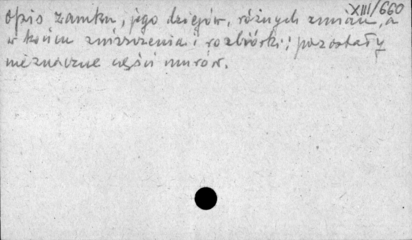 XIII/660
opis zamku, jego dziejów, różnych zmian, a
w końcu zniszczenia i rozbiórki; pozostały
nieznaczne części murów.